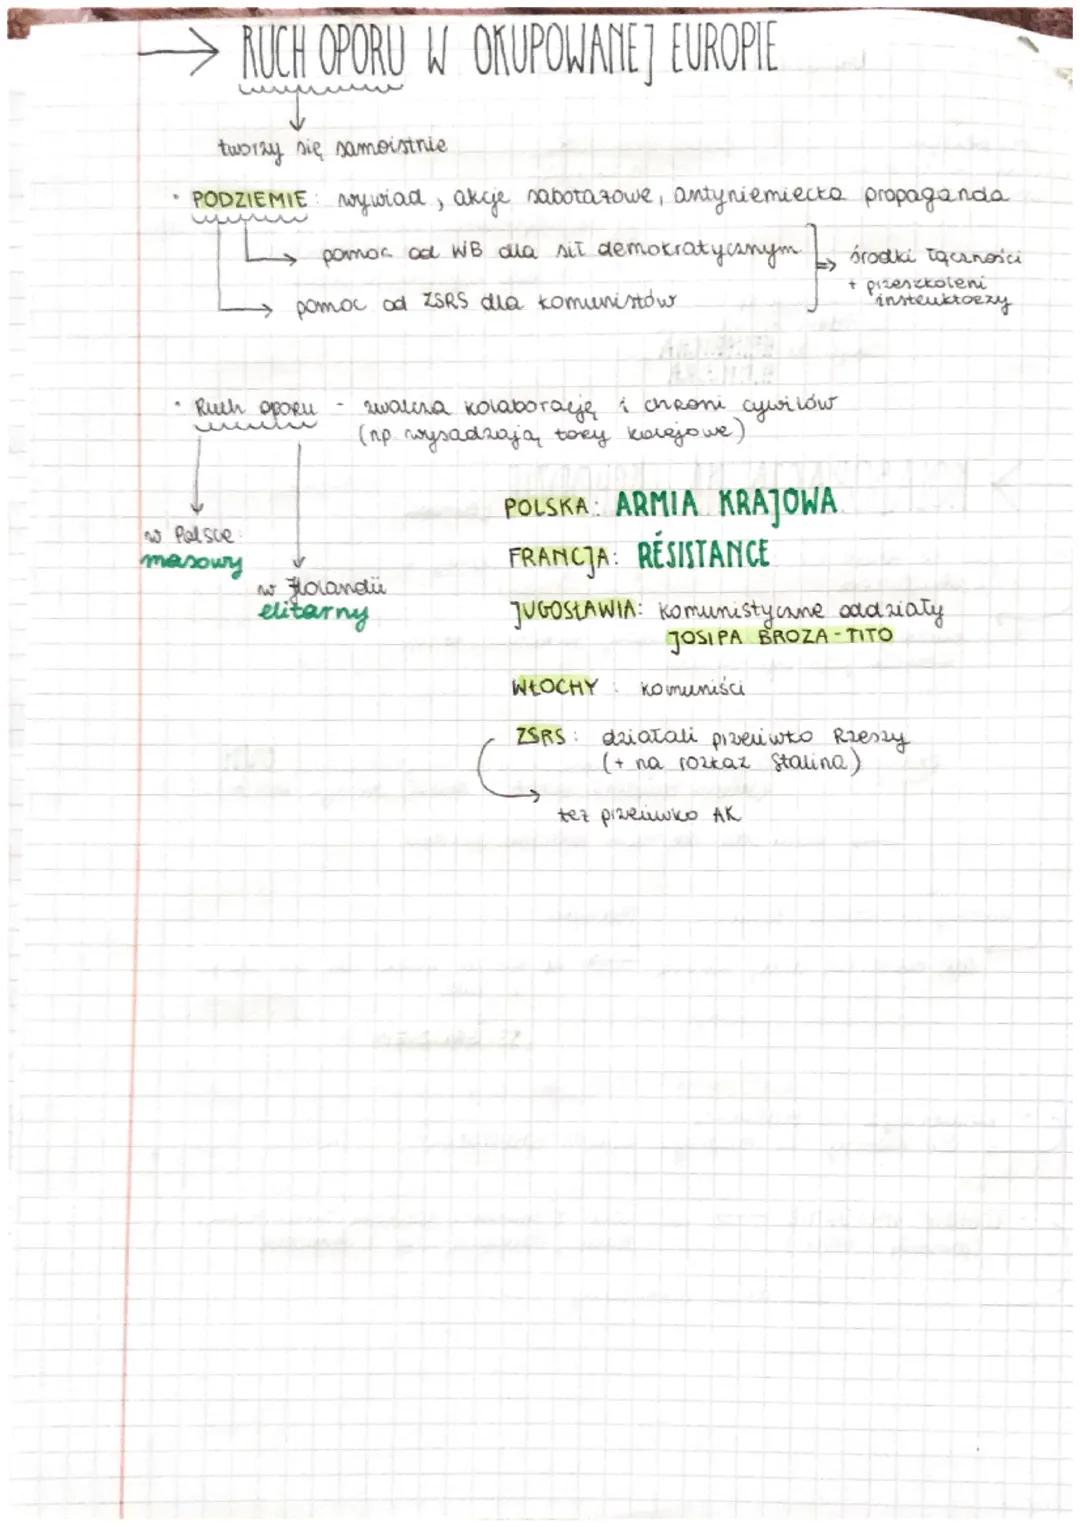 → RUCH OPORU W OKUPOWANEJ EUROPIE
tworzy się samoistnie
· PODZIEMIE: wywiad, akcje sabotażowe, antyniemiecka propaganda
→ pomoc od WB dla sił demokratycznym ⇒ środki łączności
+ przeszkoleni
instruktorzy
→ pomoc od ZSRS dla komunistów
· Ruch oporu - zwalcza kolaborację i chroni cywilów
(np. wysadzają tory kolejowe)
w Polsce:
masowy
w Holandii
elitarny
POLSKA: ARMIA KRAJOWA
FRANCJA: RÉSISTANCE
JUGOSŁAWIA: komunistyczne oddziały
JOSIPA BROZA-TITO
WŁOCHY: komuniści
ZSRS: działali przeciwko Rzeszy
(+ na rozkaz Stalina)
→ też przeciwko AK